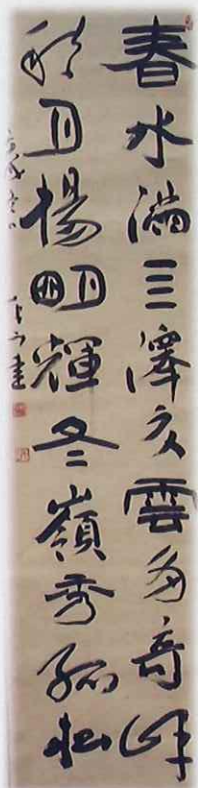 春水滿三澤夏雲多奇峰
秋月揚明輝冬嶺秀孤松